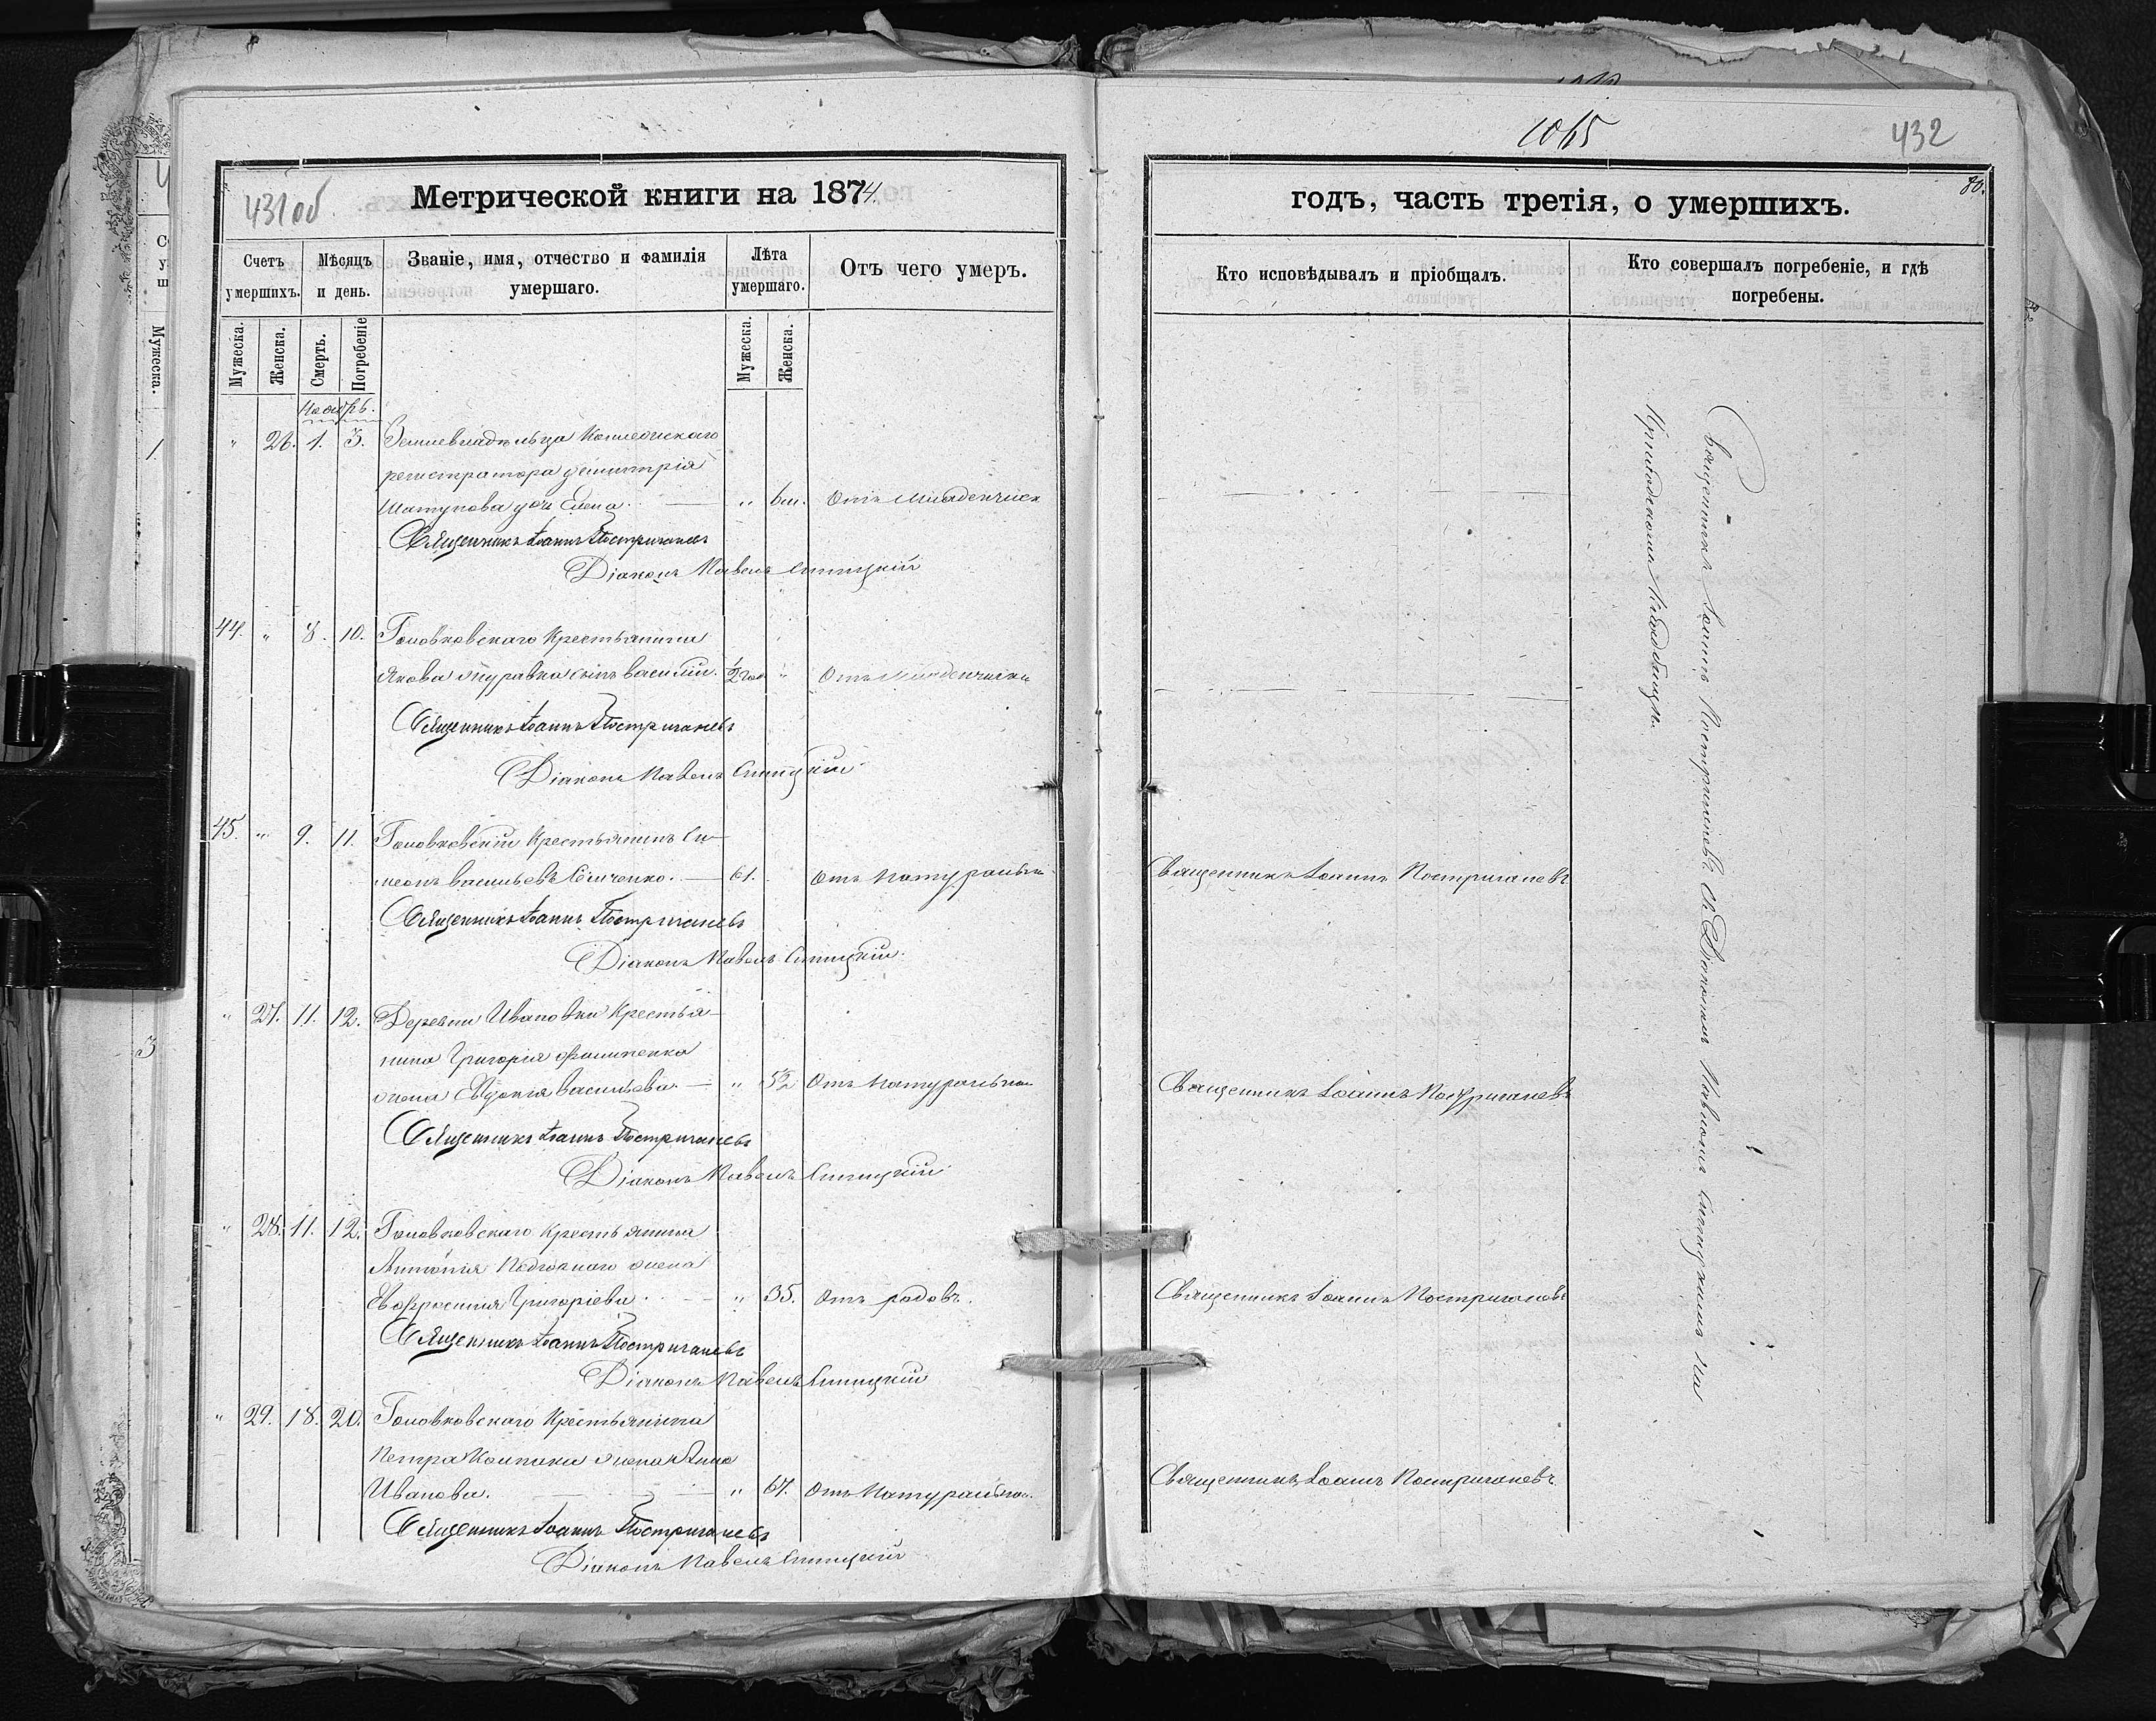 1065
432
431об
80.
Метрической книги на 1874
годъ, часть третія, о умершихъ.
Счетъ умершихъ.
Мѣсяцъ и день.
Званіе, имя, отчество и фамилія умершаго.
Лѣта умершаго.
Отъ чего умеръ.
Кто исповѣдывалъ и пріобщалъ.
Кто совершалъ погребеніе, и гдѣ погребены.
Мужеска.
Женска.
Смерть.
Погребеніе
Мужеска.
Женска.
Ноябрь.
" 26. 1. 3. Землевладѣльца Коллежскаго
регистратора Димитрія
дочь Елена. " 6м. Отъ младенческ
Священникъ Іоаннъ Постригачевъ
Діаконъ Павелъ
44. " 8. 10. Головковскаго Крестьянина
Якова Журавка сынъ Василій. 1/2 год. " Отъ младенческ
Священникъ Іоаннъ Постригачевъ
Діаконъ Павелъ
45. " 9. 11. Головковскій Крестьянинъ Си-
меонъ Васильевъ 61. Отъ натуральн Священникъ Іоаннъ Постригачевъ
Священникъ Іоаннъ Постригачевъ
Діаконъ Павелъ
" 27. 11. 12. Деревни Ивановки Крестья-
нина Григорія
жена Евдокія Васильева. " 52 Отъ натуральн Священникъ Іоаннъ Постригачевъ
Священникъ Іоаннъ Постригачевъ
Діаконъ Павелъ
" 28. 11. 12. Головковскаго Крестьянина
Антонія жена
Евфросинія Григоріева " 35. Отъ родовъ. Священникъ Іоаннъ Постригачевъ
Священникъ Іоаннъ Постригачевъ
Діаконъ Павелъ
" 29. 18. 20. Головковскаго Крестьянина
Петра жена Анна
Иванова. " 67. Отъ натуральн. Священникъ Іоаннъ Постригачевъ
Священникъ Іоаннъ Постригачевъ
Діаконъ Павелъ
Священникъ Іоаннъ Постригачевъ съ Діакономъ Павломъ на
Приходскомъ Кладбищѣ.